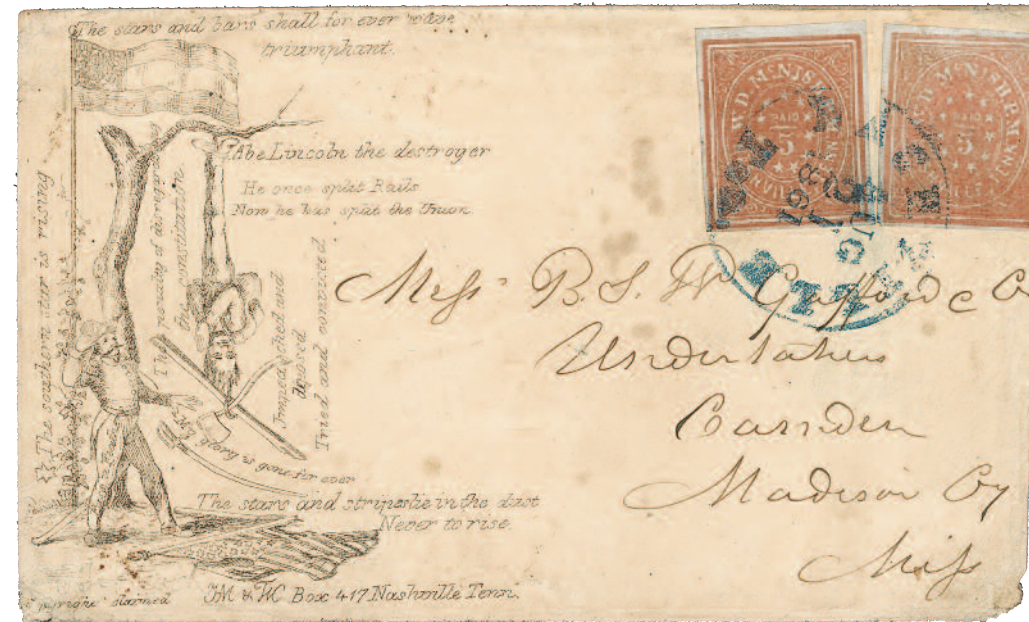 The stars and bars shall for ever wave
triumphant.
Abe Lincoln the destroyer
He once split Rails
Now he has split the Union.
The southern star is rising
The penalty of
the constitution
Impeached and
deposed
Tried and convicted
My glory is gone for ever
The stars and stripes lie in the dust
Never to rise.
JM & HC Box 417 Nashville Tenn.
claimed
W.D. McNISH P.M.
PAID
5
NASHVILLE, TENN
W.D. McNISH P.M.
PAID
5
NASHVILLE, TENN
NASHVILLE
AUG
61
Mess B. S. W. Gafford & Co
Undertakers
Camden
Madison Cy
Miss